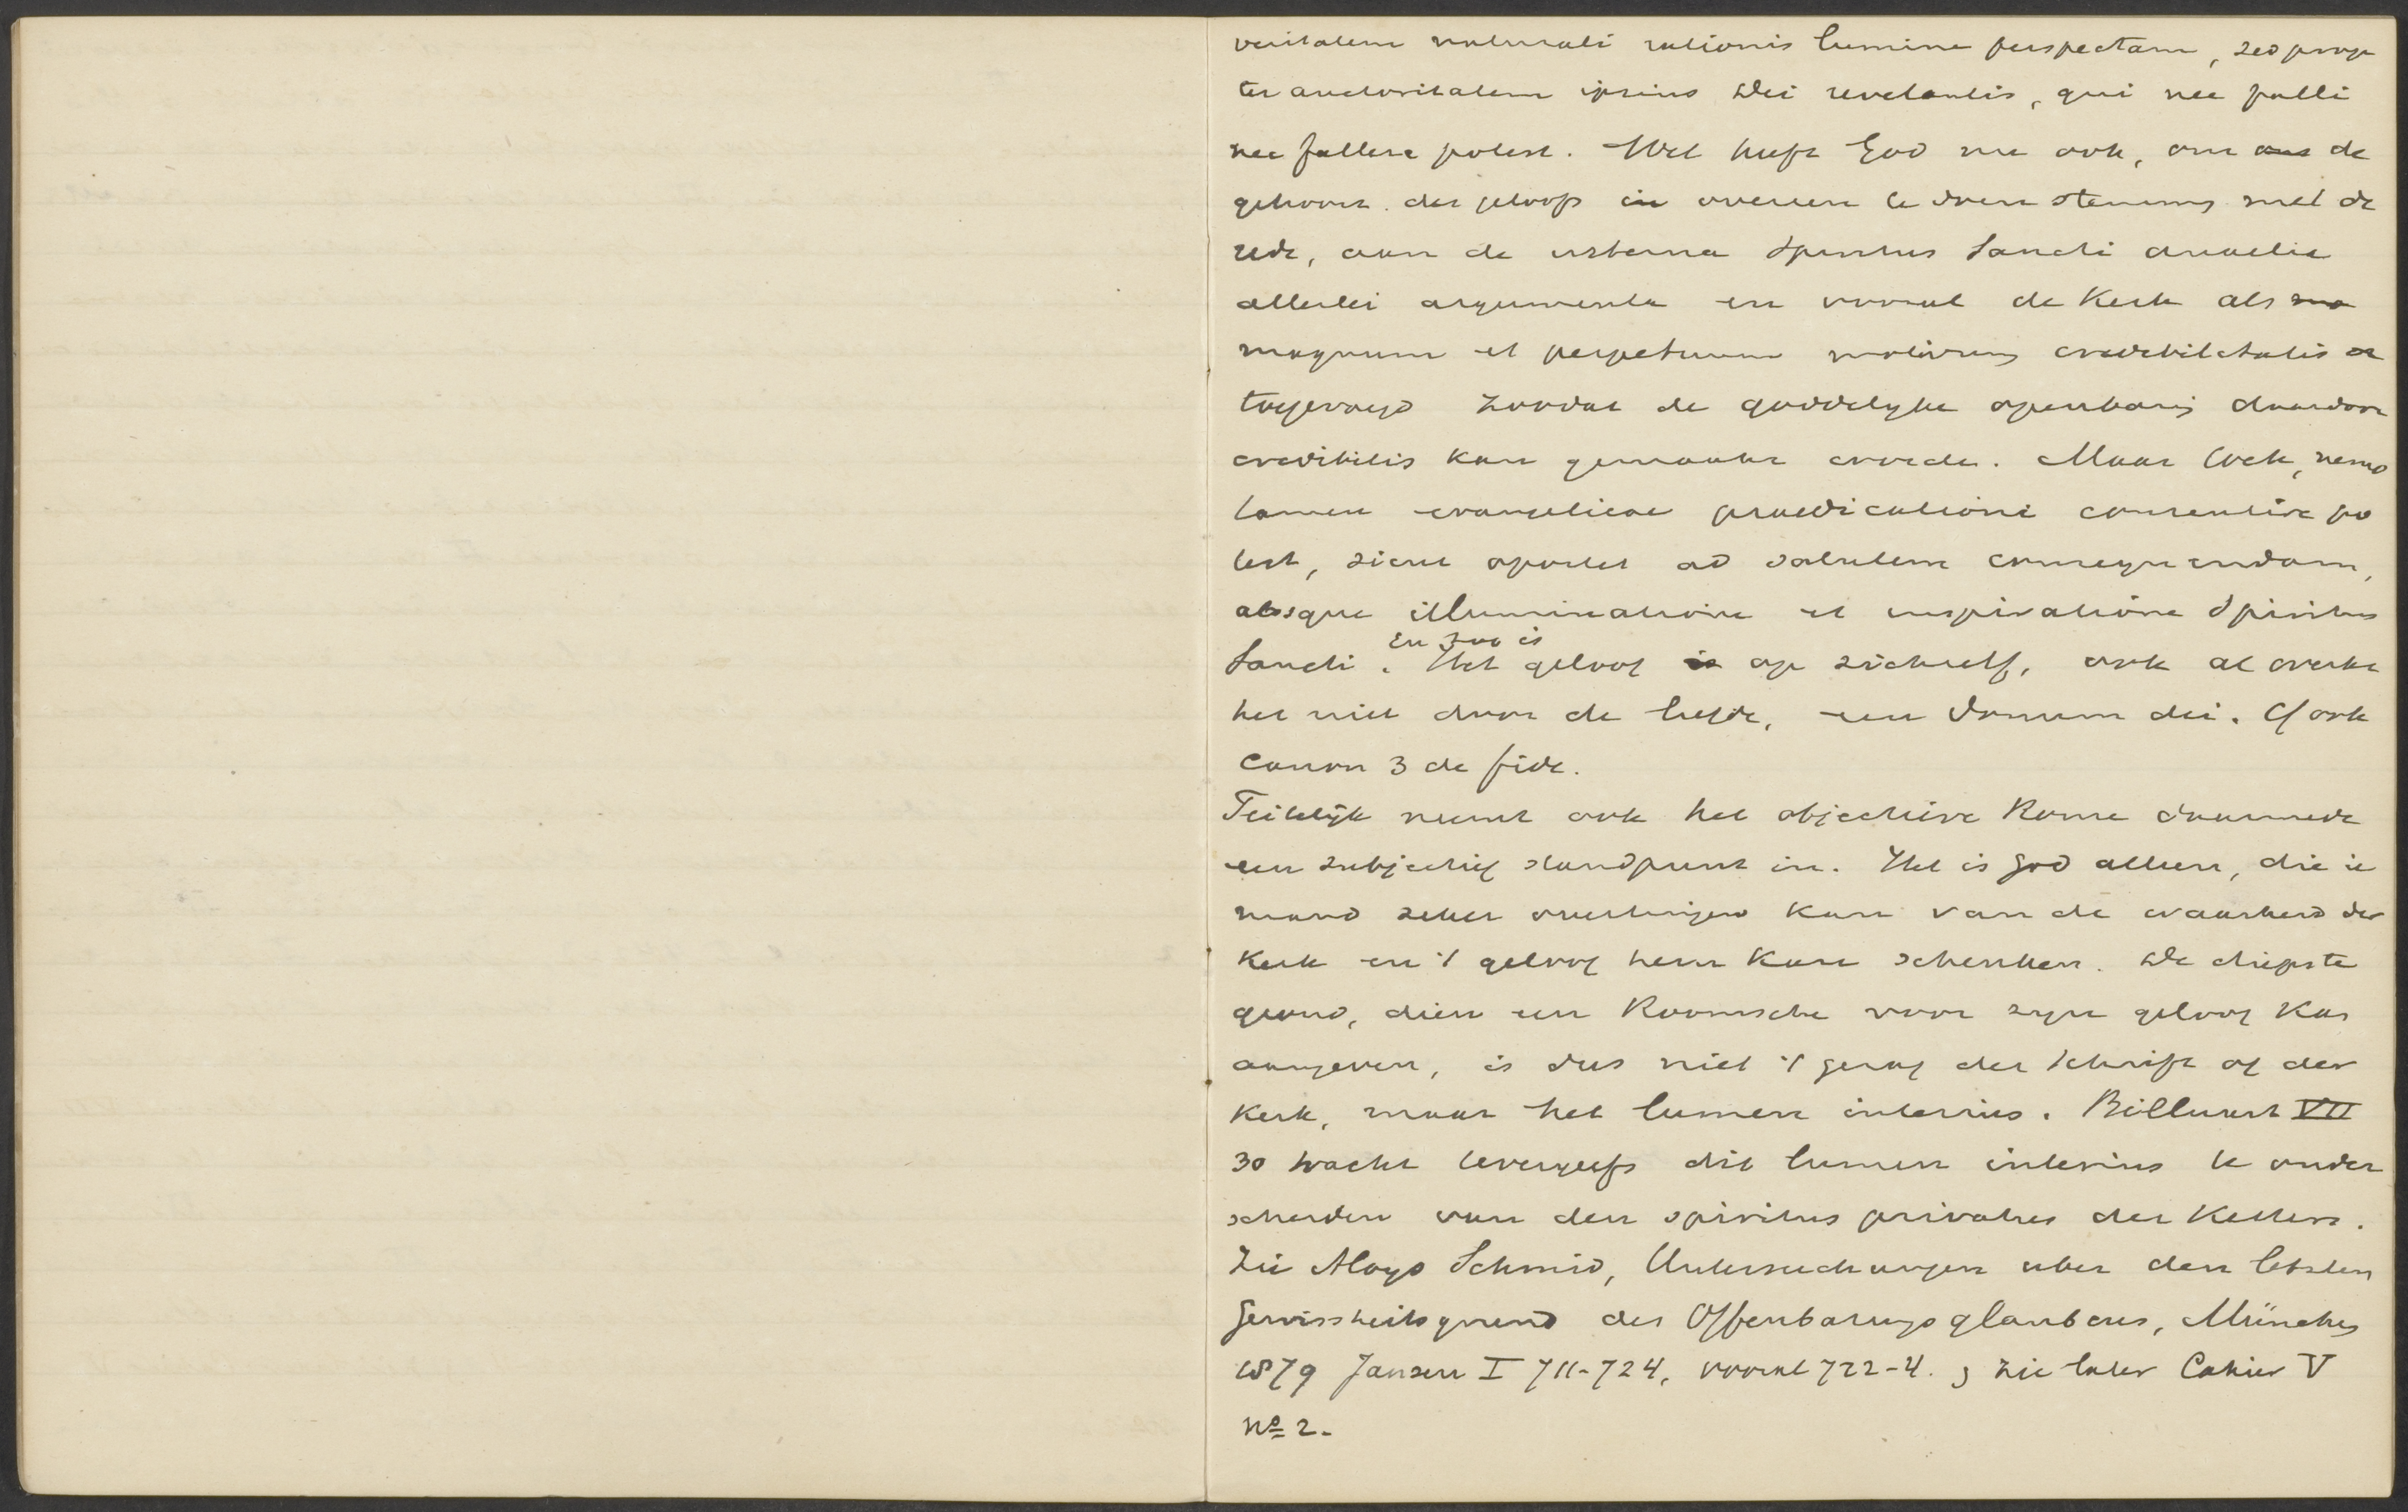 veritatem naturali rationis lumine perspectam, sed prop
ter auctoritatem ipsius Dei revelantis, qui nec falli
nec fallere potest. Wel heeft God nu ook, om aus de
gehoorz. des geloofs in overeen te doen stemmen met de
rede, aan de interna Spiritus Sancti auxilia
allerlei argumenta en vooral de Kerk als ma
magnum et perpetuum motivum credibilitatis
toegevoegd zoodat de goddelyke openbaring daardoor
credibilis kan gemaakt worden. Maar toch, nemo
tamen evangelicae praedicationi consentire po
test, sicut oportet ad salutem consequendam,
absque illuminatione et inspiratione Spiritus
Sancti. En zoo is Het geloof is op zichzelf, ook al werkt
het niet door de liefde, een donum dei. Cf ook
Canon 3 de fide.
Feitelijk neemt ook het objectieve Rome daarmede
een subjectief standpunt in. Het is God alleen, die ie
mand zeker overtuigen kan van de waarheid der
Kerk en 't geloof hem kan schenken. De diepste
grond, dien een Roomsche voor zyn geloof kan
aangeven, is dus niet 't gezag der Schrift of der
Kerk, maar het lumen interius. Billuart VII
30 tracht tevergeefs dit lumen interius te onder
scheiden van den spiritus privatus der Ketters.
Zie Aloys Schmid, Untersuchungen uber den letzten
Gewissheitsgrund des Offenbarungsglaubens, München
1879 Jansen I 711-724, vooral 722-4. ; zie later Cahier V
No 2.